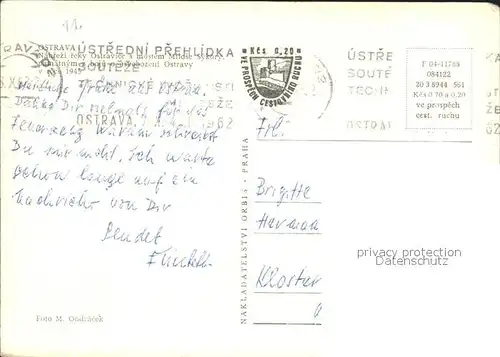 OSTRAVA
Nábřeží řeky Ostravice s mostem Miloše Sýkory,
ÚSTŘEDNÍ PŘEHLÍDKA
SOUTĚŽE
OSTRAVA
1962
Kčs 0,20
VE PROSPĚCH CESTOVNÍHO RUCHU
ÚSTŘE
SOUTĚ
TECHN
OSTRAV
F 04-11785
084122
20 3 6944 561
Kčs 0.70 a 0.20
ve prospěch
cest. ruchu
Herzliche Grüße aus
Danke Dir vielmals für das
Feuerzeug warum schreibst
Du mir nicht. Ich warte
schon lange auf ein
Nachricht von Dir
Sendet
Frl.
Brigitte
Herman
Kloster
NAKLADATELSTVÍ ORBIS - PRAHA
privacy protection
Datenschutz
Foto M. Ondráček